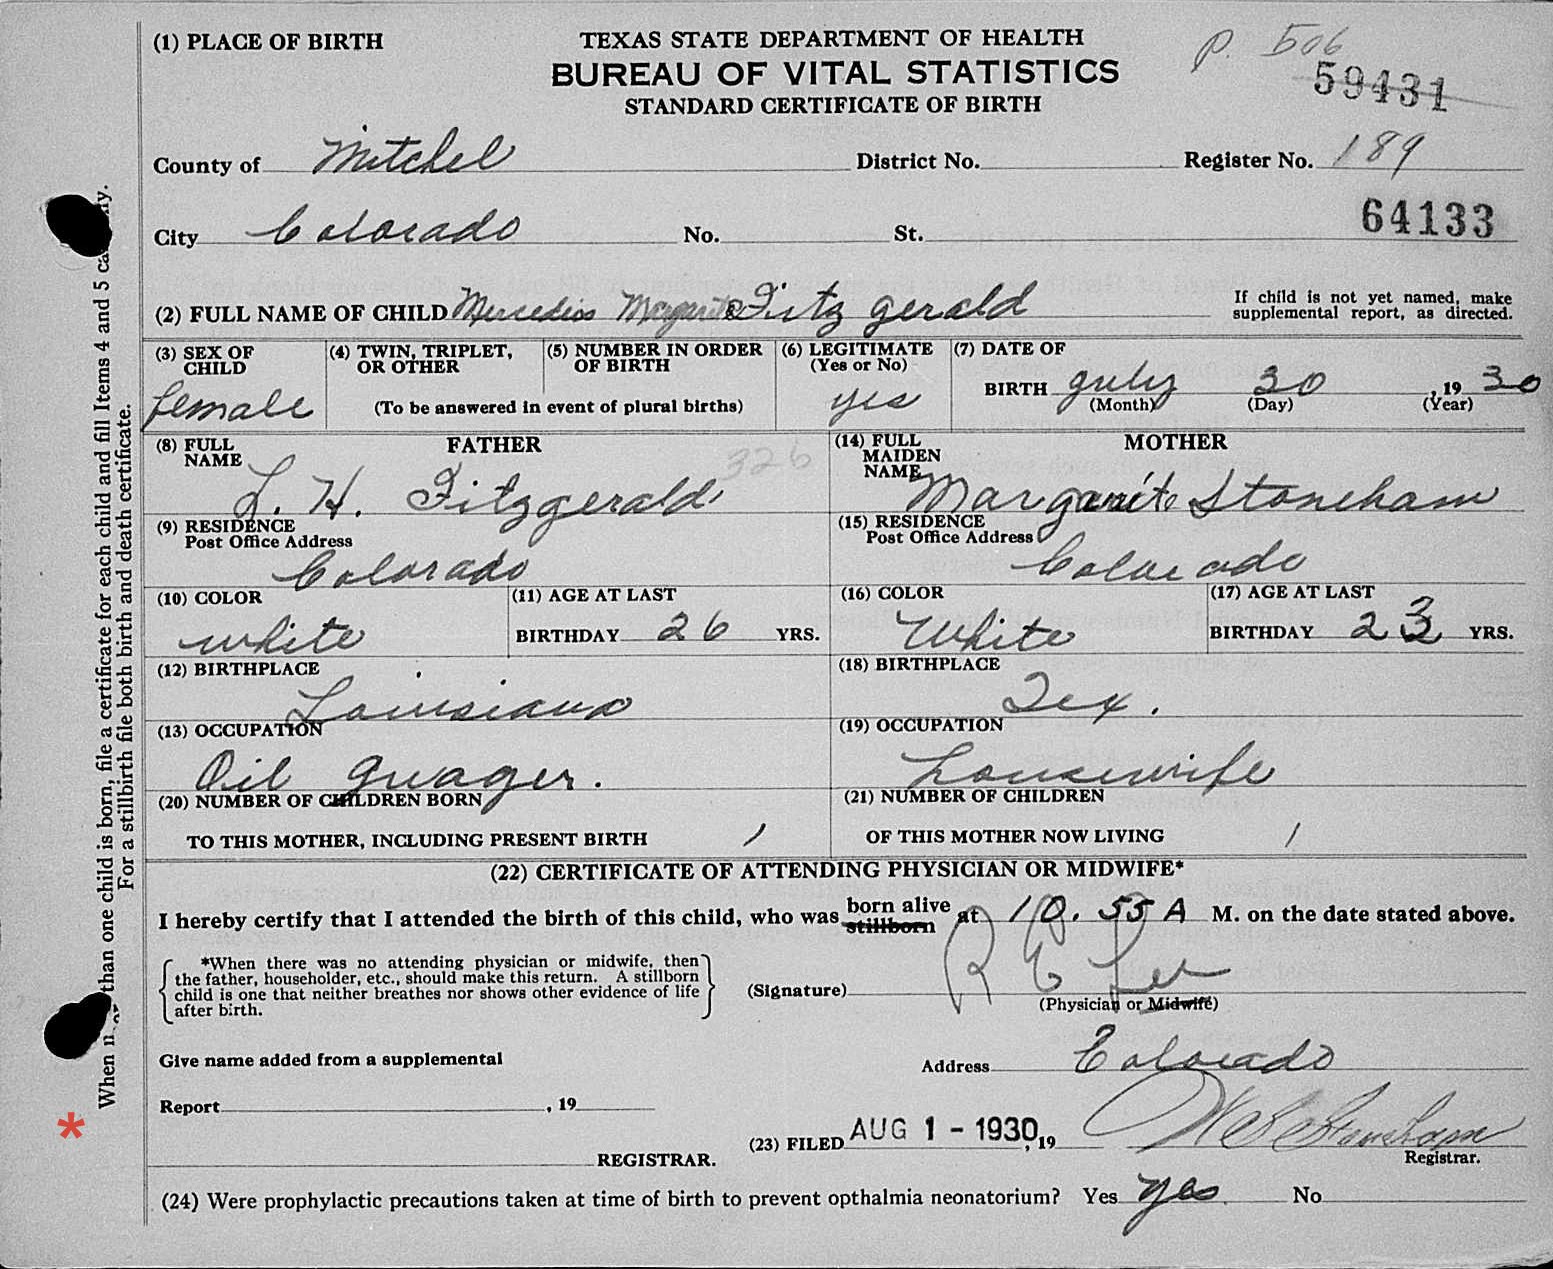 (1) PLACE OF BIRTH
TEXAS STATE DEPARTMENT OF HEALTH
BUREAU OF VITAL STATISTICS
STANDARD CERTIFICATE OF BIRTH
P. 506
59431
County of Mitchel District No. Register No. 189
64133
City Colorado No. St.
(2) FULL NAME OF CHILD Mercedies Margarite Fitz gerald
If child is not yet named, make
supplemental report, as directed.
(3) SEX OF CHILD female
(4) TWIN, TRIPLET, OR OTHER
(5) NUMBER IN ORDER OF BIRTH
(To be answered in event of plural births)
(6) LEGITIMATE (Yes or No) yes
(7) DATE OF BIRTH July 30, 19 30
(Month) (Day) (Year)
FATHER
(8) FULL NAME L. H. Fitzgerald
326
MOTHER
(14) FULL MAIDEN NAME Margarite Stoneham
(9) RESIDENCE
Post Office Address Colorado
(15) RESIDENCE
Post Office Address Colorado
(10) COLOR white
(11) AGE AT LAST BIRTHDAY 26 YRS.
(16) COLOR White
(17) AGE AT LAST BIRTHDAY 23 YRS.
(12) BIRTHPLACE Louisiana
(18) BIRTHPLACE Tex.
(13) OCCUPATION Oil guager.
(19) OCCUPATION housewife
(20) NUMBER OF CHILDREN BORN
TO THIS MOTHER, INCLUDING PRESENT BIRTH 1
(21) NUMBER OF CHILDREN
OF THIS MOTHER NOW LIVING 1
(22) CERTIFICATE OF ATTENDING PHYSICIAN OR MIDWIFE*
I hereby certify that I attended the birth of this child, who was born alive stillborn at 10.55 A M. on the date stated above.
*When there was no attending physician or midwife, then
the father, householder, etc., should make this return. A stillborn
child is one that neither breathes nor shows other evidence of life
after birth.
(Signature) R E Lee
(Physician or Midwife)
Give name added from a supplemental
Address Colorado
Report , 19
(23) FILED AUG 1 - 1930, 19 Stoneham
REGISTRAR.
Registrar.
(24) Were prophylactic precautions taken at time of birth to prevent opthalmia neonatorium? Yes yes No
When than one child is born, file a certificate for each child and fill Items 4 and 5
For a stillbirth file both birth and death certificate.
*